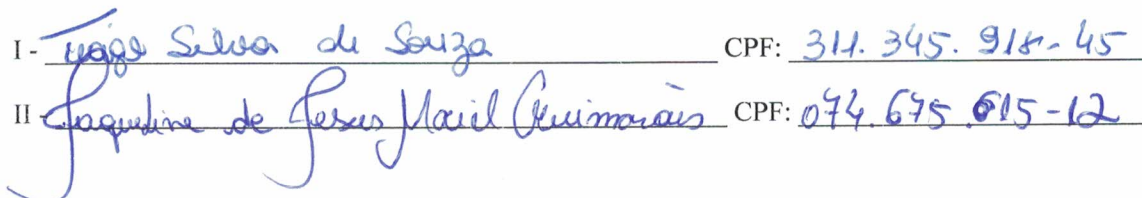 I - Tiago Silva de Souza CPF: 311.345.918-45
II - Jaqueline de Jesus Maciel Guimarães CPF: 074.675.615-12